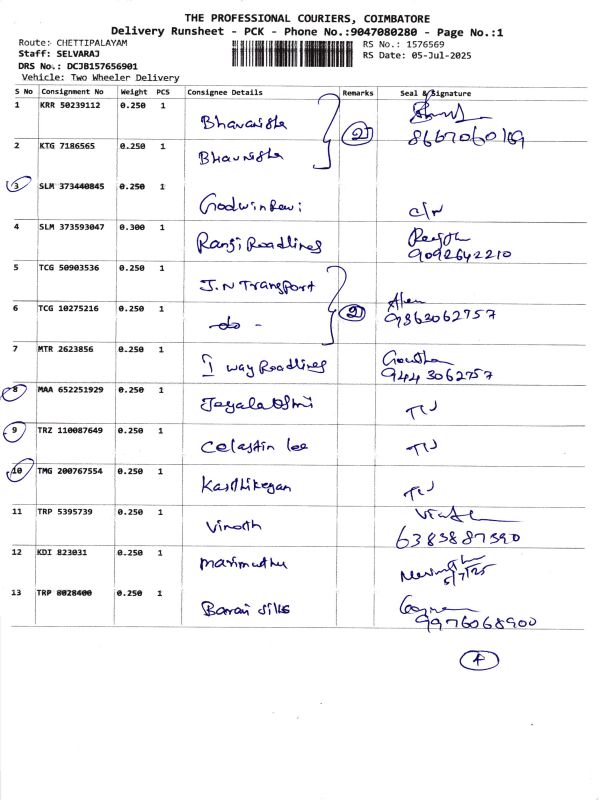 THE PROFESSIONAL COURIERS, COIMBATORE
Delivery Runsheet - PCK - Phone No.:9047080280 - Page No.:1
Route: CHETTIPALAYAM RS No.: 1576569
Staff: SELVARAJ RS Date: 05-Jul-2025
DRS No.: DCJB157656901
Vehicle: Two Wheeler Delivery
S No Consignment No Weight PCS Consignee Details Remarks Seal & Signature
1 KRR 50239112 0.250 1 Bhavanisha 2
2 KTG 7186565 0.250 1 Bhavnisha
3 SLM 373440845 0.250 1 Godwin Ravi C/N
4 SLM 373593047 0.300 1 Ranji Roadlines 9092642210
5 TCG 50903536 0.250 1 J.N Transport 2
6 TCG 10275216 0.250 1 - do - 9863062757
7 MTR 2623856 0.250 1 I way Roadlines Gowtham 9443062757
8 MAA 652251929 0.250 1 Jayalakshmi
9 TRZ 110087649 0.250 1 Celastin lee
10 TMG 200767554 0.250 1 Karthikeyan
11 TRP 5395739 0.250 1 Vinoth 6383887390
12 KDI 823031 0.250 1 Marimuthu 5/7/25
13 TRP 8028400 0.250 1 Barani silks 9976068900